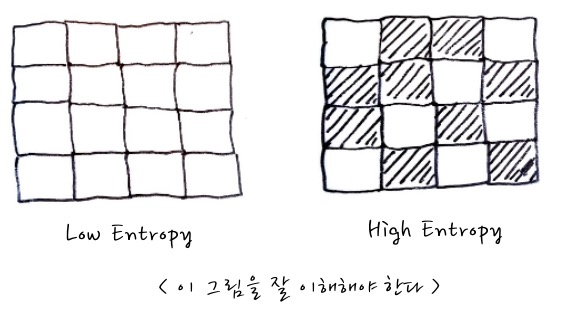 Low Entropy
High Entropy
< 이 그림을 잘 이해해야 한다 >